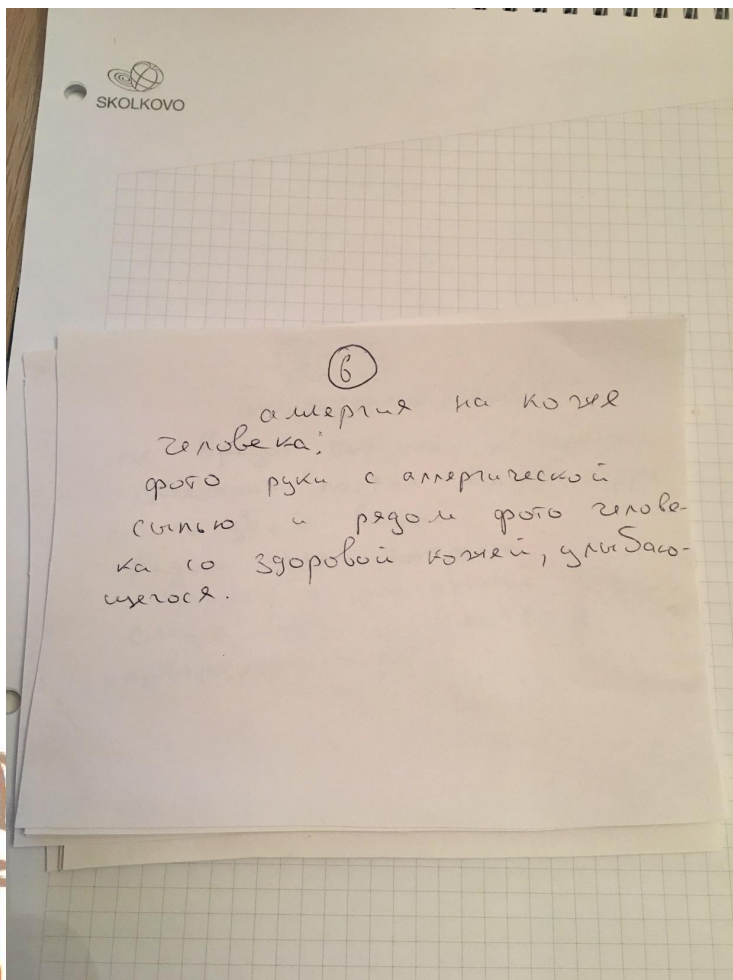 SKOLKOVO
6
аллергия на коже
человека:
фото руки с аллергической
сыпью и рядом фото челове-
ка со здоровой кожей, улыбаю-
щегося.